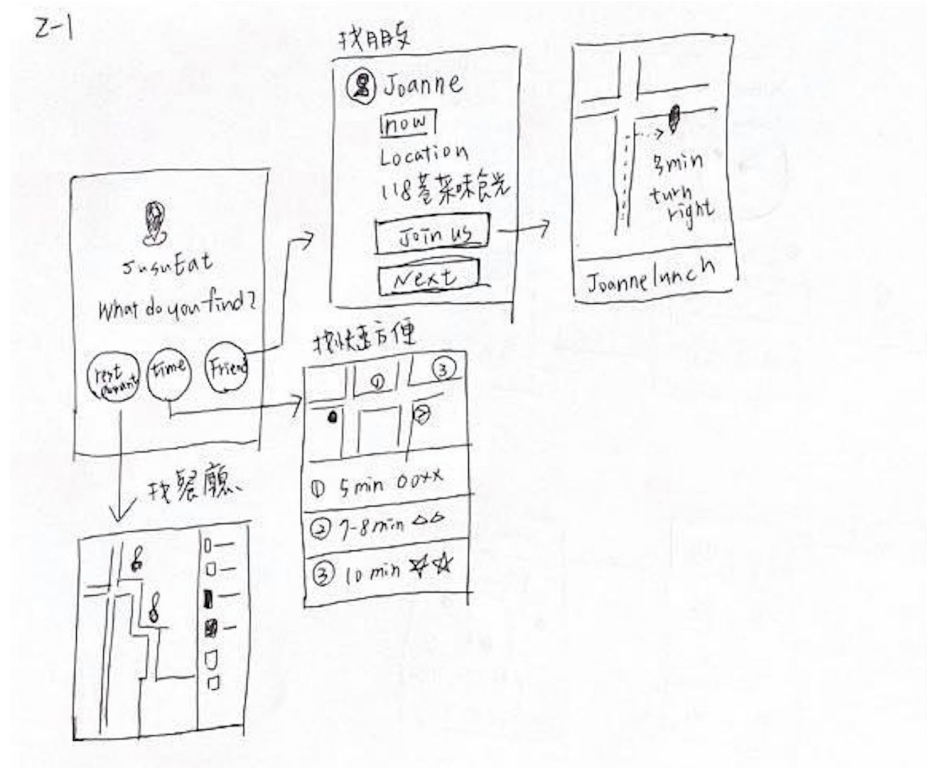 2-1
找朋友
Joanne
now
Location
Join us
Next
3min
turn
right
Joanne lunch
JusuEat
What do you find?
time
Friend
找快速方便
①
③
②
① 5min 00xx
② 7-8min △△
③ 10 min ☆☆
找餐廳